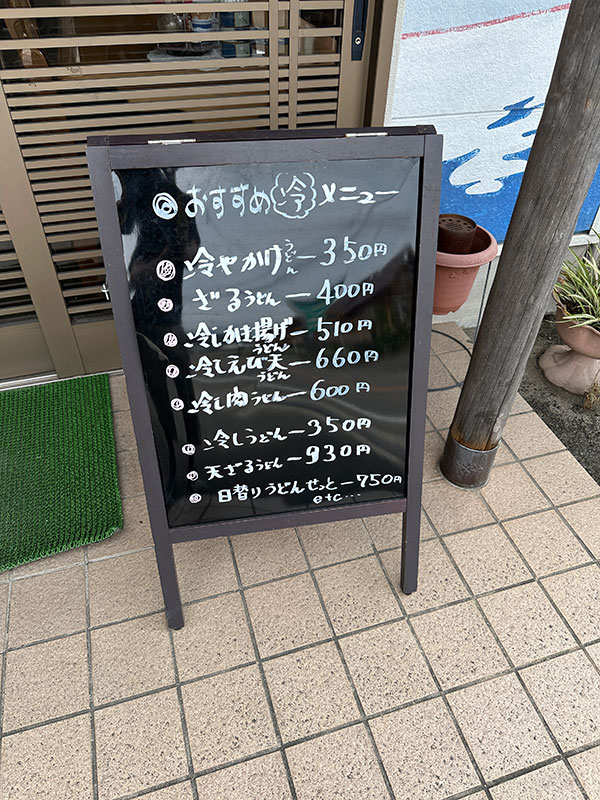 ◎おすすめ冷メニュー
冷やかけうどん－350円
ざるうどん－400円
冷しかき揚げうどん－510円
冷しえび天うどん－660円
冷し肉うどん－600円
冷しうどん－350円
天ざるうどん－930円
日替りうどんせっと－750円
etc…